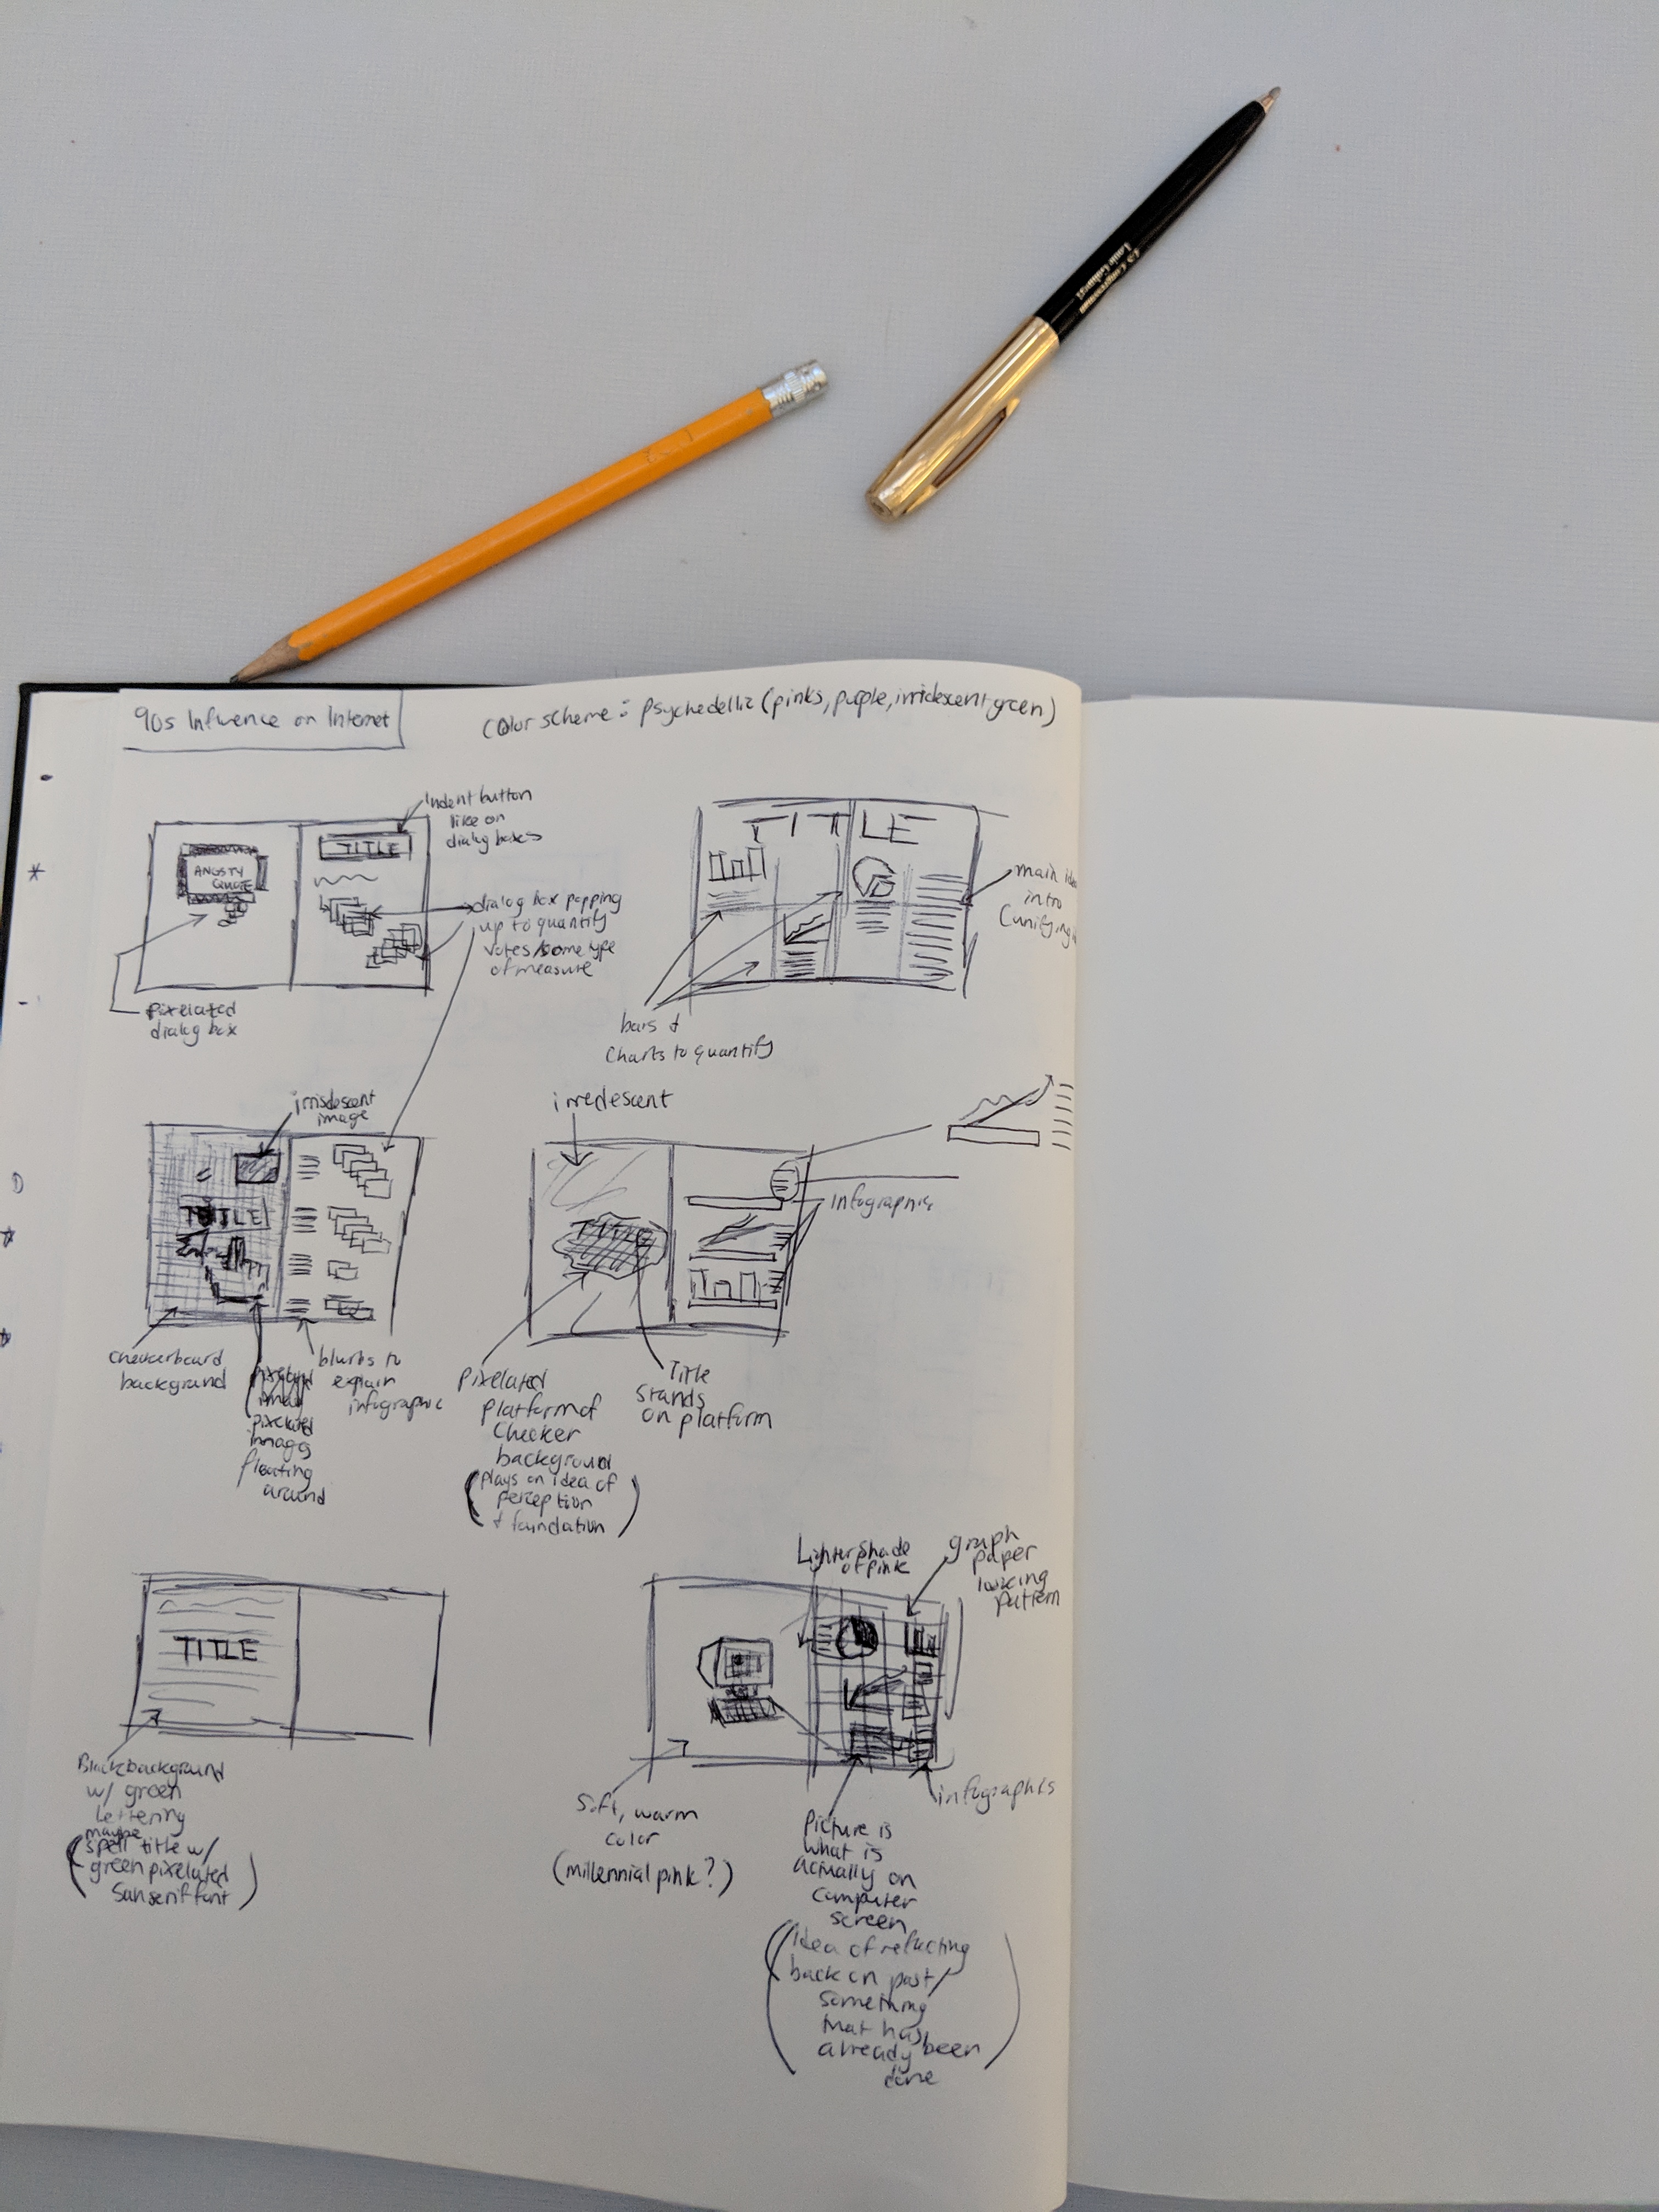 90s Influence on Internet
Color scheme: psychedellic (pinks, purple, irridescent green)
Indent button
like on
dialog boxes
ANGSTY
QUOTE
TITLE
dialog box popping
up to quantify
votes/some type
of measure
pixelated
dialog box
TITLE
main
intro
(unifying
bars &
charts to quantify
irrisdescent
image
TITLE
checkerboard
background
pixelated
images
floating
around
blurbs to
explain
infographic
irredescent
TITLE
infographics
pixelated
platform of
checker
background
(plays on idea of
perception
& foundation)
Title
stands
on platform
TITLE
Black background
w/ green
lettering
maybe
(spell title w/
green pixelated
San serif font)
Lighter shade
of pink
graph
paper
looking
pattern
Soft, warm
color
(millennial pink?)
infographics
Picture is
what is
actually on
computer
screen
(idea of reflecting
back on past/
something
that has
already been
done)
US Congressman
Louie Gohmert